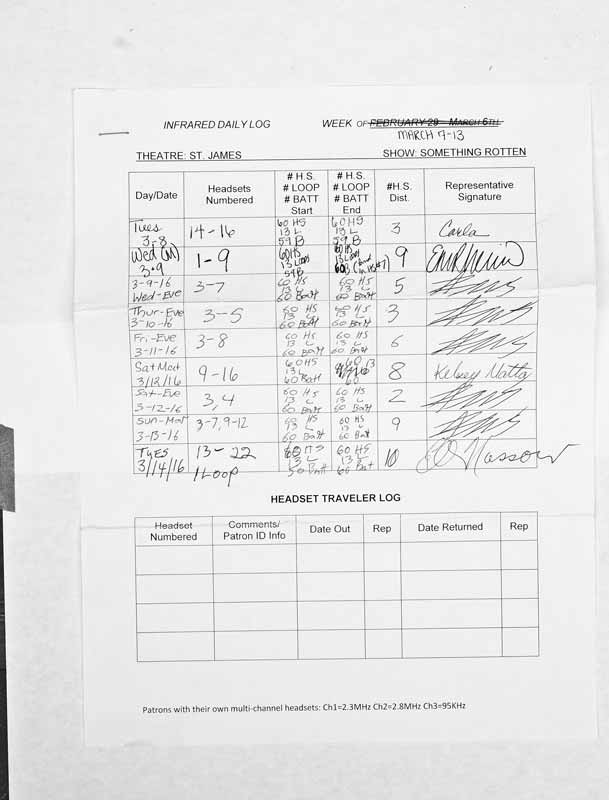 INFRARED DAILY LOG WEEK OF FEBRUARY 29 - MARCH 6TH
MARCH 7-13
THEATRE: ST. JAMES SHOW: SOMETHING ROTTEN
Day/Date Headsets Numbered # H.S. # LOOP # BATT Start # H.S. # LOOP # BATT End #H.S. Dist. Representative Signature
Tues 3-8 14-16 60 HS 13 L 59 B 60 HS 13 L 59 B 3 Carla
Wed (M) 3-9 1-9 60HS 13 LOOP 59B 60HS 13 LOOP 60B 9
3-9-16 Wed-Eve 3-7 60 HS 13 L 60 Batt 60 HS 13 L 60 Batt 5
Thur-Eve 3-10-16 3-5 60 HS 13 L 60 Batt 60 HS 13 L 60 Batt 3
Fri-Eve 3-11-16 3-8 60 HS 13 L 60 Batt 60 HS 13 L 60 Batt 6
Sat Mat 3/12/16 9-16 60HS 13L 60 Batt 60 13 60 8 Kelsey Matta
Sat-Eve 3-12-16 3,4 60 HS 13 L 60 Batt 60 HS 13 L 60 Batt 2
Sun-Mat 3-13-16 3-7, 9-12 60 HS 13 L 60 Batt 60 HS 13 L 60 Batt 9
TUES 3/14/16 13-22 1 LOOP 60 HS 13 L 50 Batt 60 HS 13 L 60 Bat 10
HEADSET TRAVELER LOG
Headset Numbered Comments/ Patron ID Info Date Out Rep Date Returned Rep
Patrons with their own multi-channel headsets: Ch1=2.3MHz Ch2=2.8MHz Ch3=95KHz